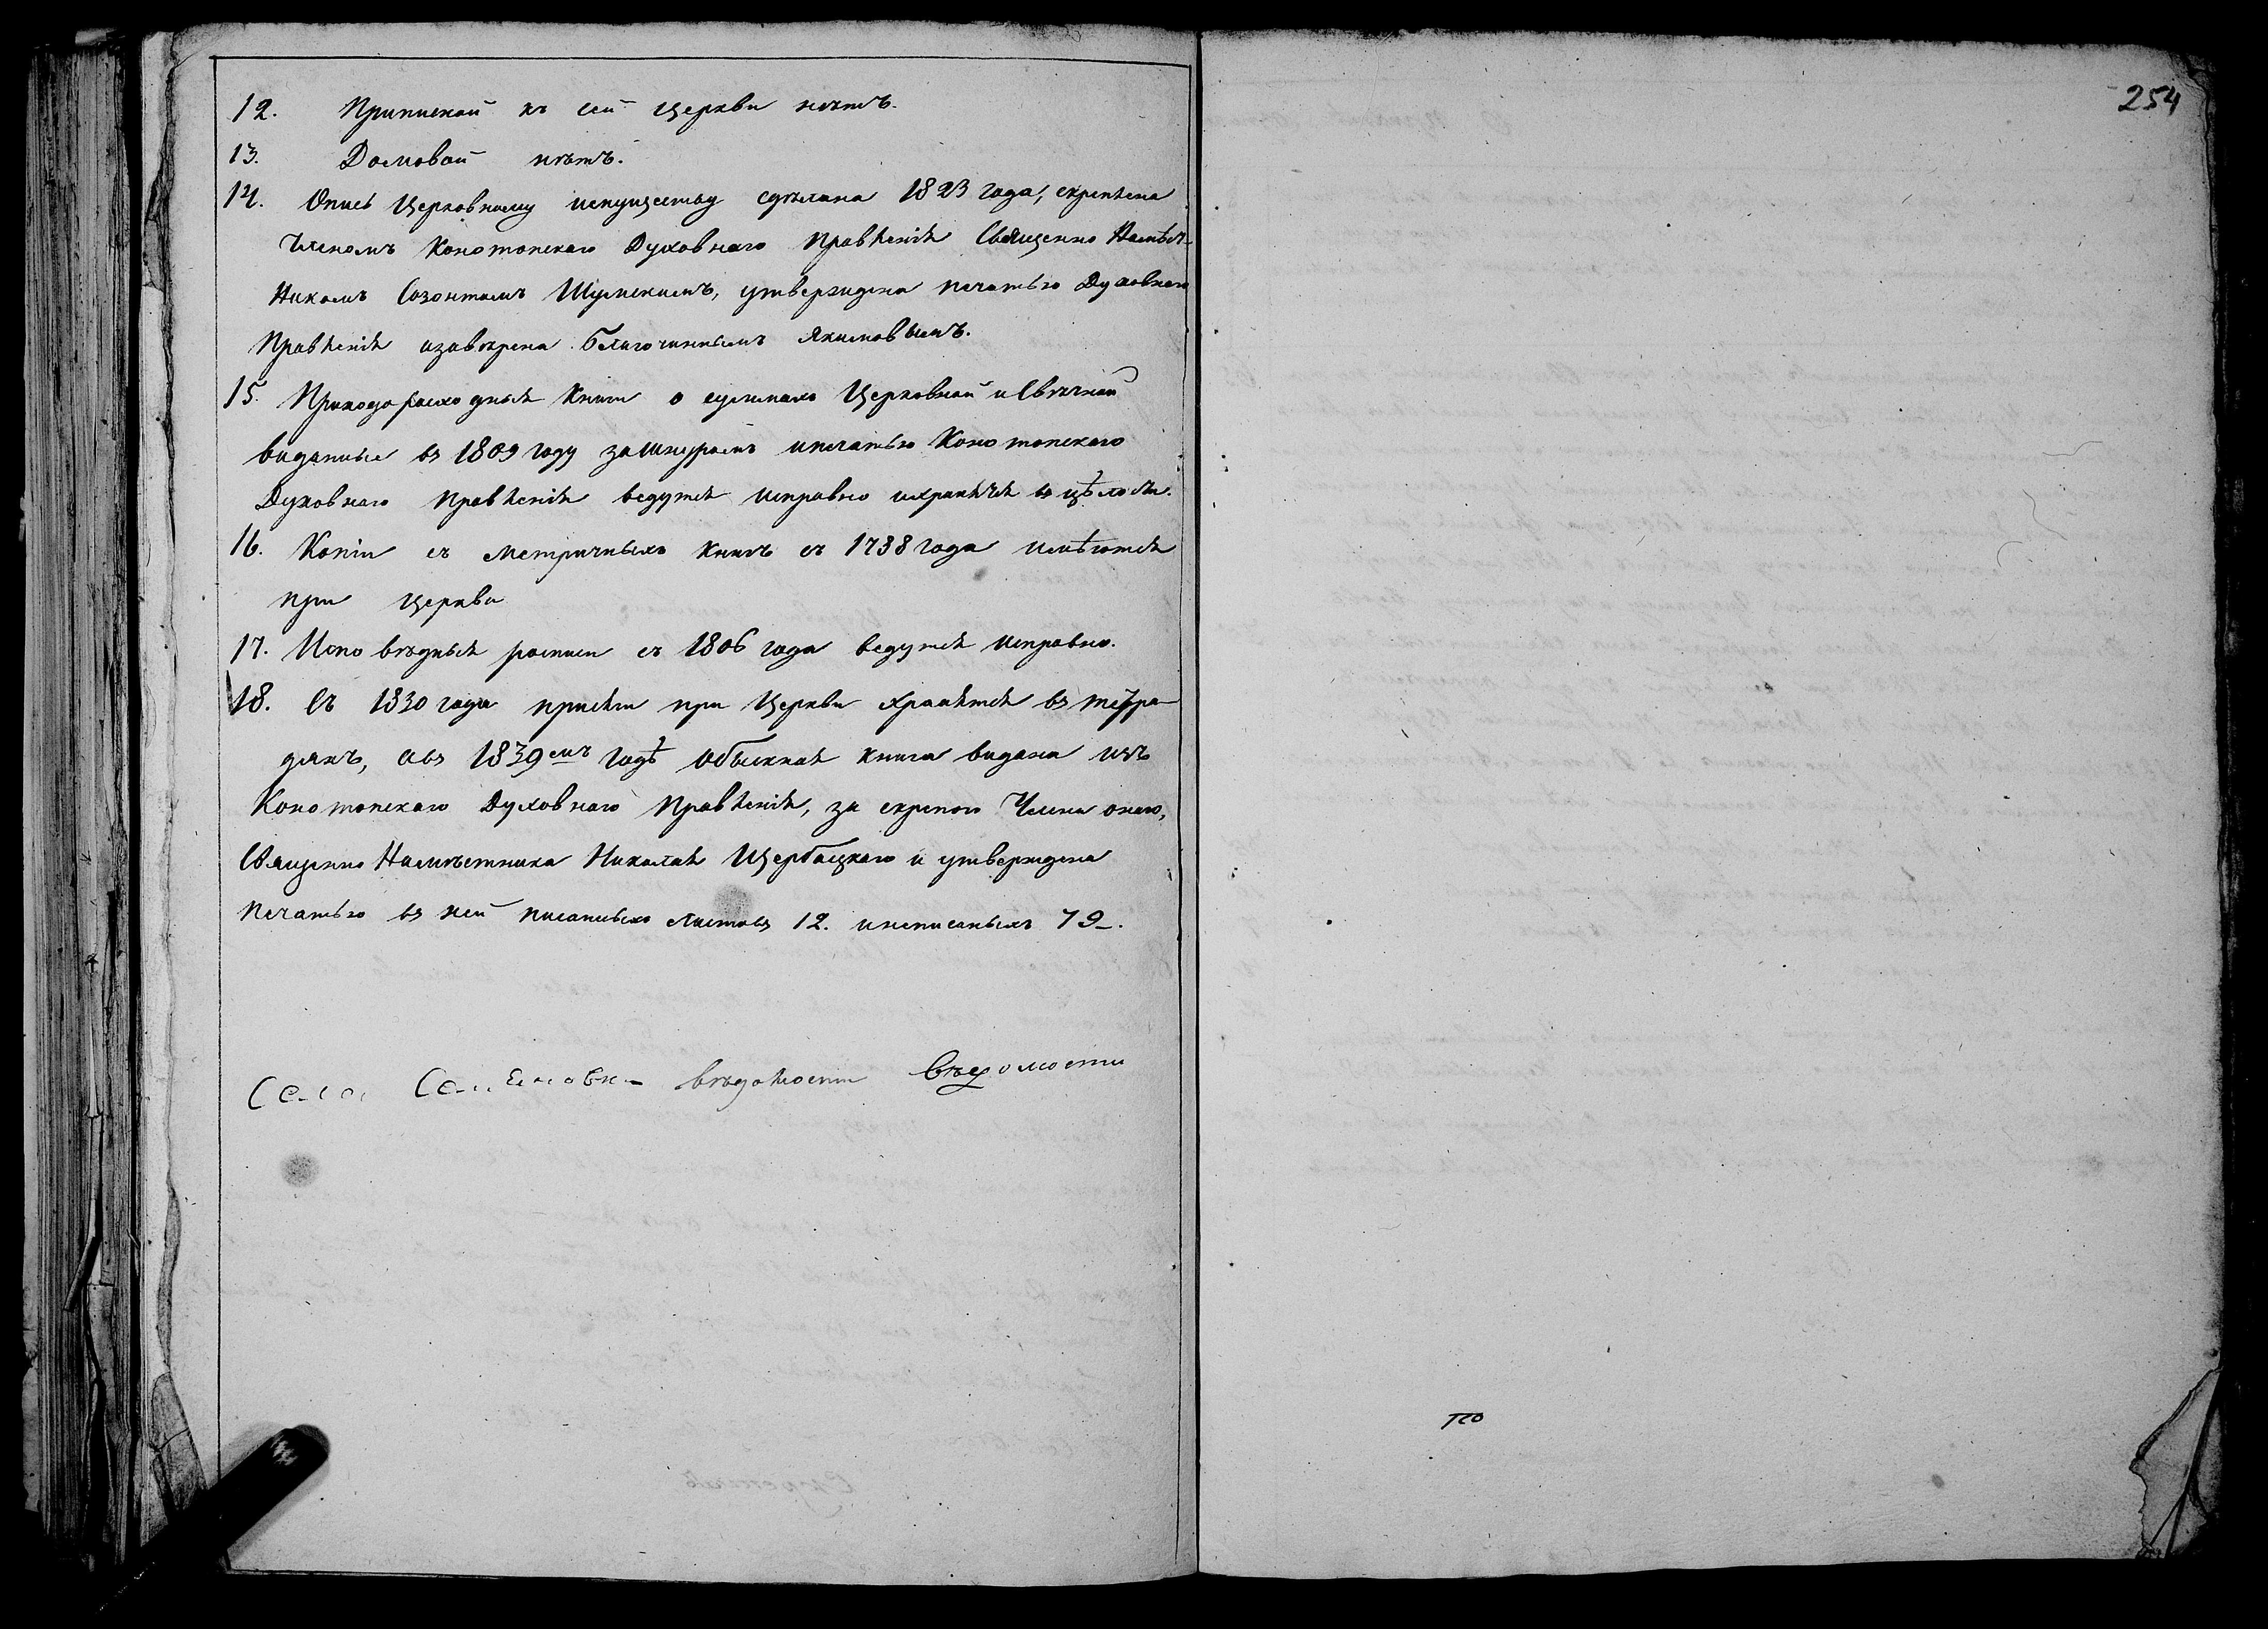 254
12. Приписной къ сей Церкви нѣтъ.
13. Домовой нѣтъ.
14. Опись Церковному имуществу сдѣлана 1823 года, скрепленa
Членомъ Конотопскаго Духовнаго Правленія Священно Намѣст-
Никомъ Созонтомъ Шумскимъ, утверждена печатью Духовнаго
Правленія изавѣрена Благочиннымъ Якимовымъ.
15. Приходорасходныя Книги о суммахъ Церковной и Свѣчной
виданные въ 1809 году зашнуромъ ипечатью Конотопскаго
Духовнаго Правленія ведутся исправно ихранятся въ цѣлости.
16. Копіи съ метричныхъ книгъ съ 1738 года имѣются
при Церкви
17. Исповѣдныя росписи съ 1806 года ведутся исправно.
18. Съ 1830 года при Церкви хранятся въ тетра-
дяхъ, авъ 1839 емъ годѣ обыскная книга видана изъ
Конотопскаго Духовнаго Правленія, за скрепою Члена онаго,
Священно Намѣстника Николая Щербацкаго и утверждена
печатью въ ней писанныхъ листовъ 12. инеписанныхъ 79.
Села вѣдомости Вѣдомости
по